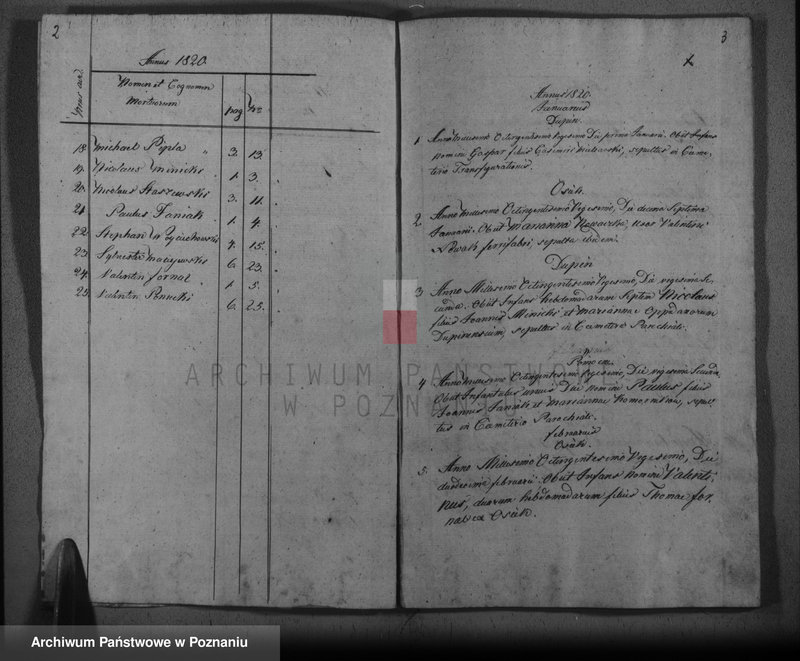 2
Annus 1820.
Nomen et Cognomen
Mortuorum
pag
No
18. Michael Pepla " 3. 13.
19. Nicolaus Minicki . 1. 3.
20. Nicolaus Staszewski 3. 11.
21. Paulus Janiak . 1. 4.
22. Stephan Woyciechowski 4. 15.
23. Sylvester Maciejewski 6. 23.
24. Valentin Fornal . 1. 5.
25. Valentin 6. 25.
3
Annus 1820.
Januarius
Dupin.
1. Anno Millesimo Octingentesimo Vigesimo Die prima Januarii. Obiit Infans
Nomine Gaspar filius Casimiri sepultus in Cæme-
terio Transfigurationis.
Osiek.
2. Anno Millesimo Octingentesimo Vigesimo, Die decima Septima
Januarii. Obiit Marianna Nowaczka, uxor Valentini
Nowak ferrifabri, sepulta ibidem.
Dupin
3 Anno Millesimo Octingentesimo Vigesimo, Die vigesima Se-
cunda. Obiit Infans hebdomadarum Septem Nicolaus
filius Joannis Minicki et Mariannæ Oppidanorum
Dupinensium, sepultus in Cæmeterio Parochiali.
Pomocin.
4 Anno Millesimo Octingentesimo Vigesimo, Die vigesima Secunda
Obiit Infantulus unius Diei nomine Paulus filius
Joannis Janiak et Mariannæ sepul-
tus in Cæmeterio Parochiali.
Februarius
Osiek.
5. Anno Millesimo Octingentesimo Vigesimo, Die
duodecima februarii. Obiit Infans nomine Valenti-
nus, duarum hebdomadarum filius Thomae For-
nal ex Osiek.
ARCHIWUM PAŃSTWOWE
W POZNANIU
Archiwum Państwowe w Poznaniu